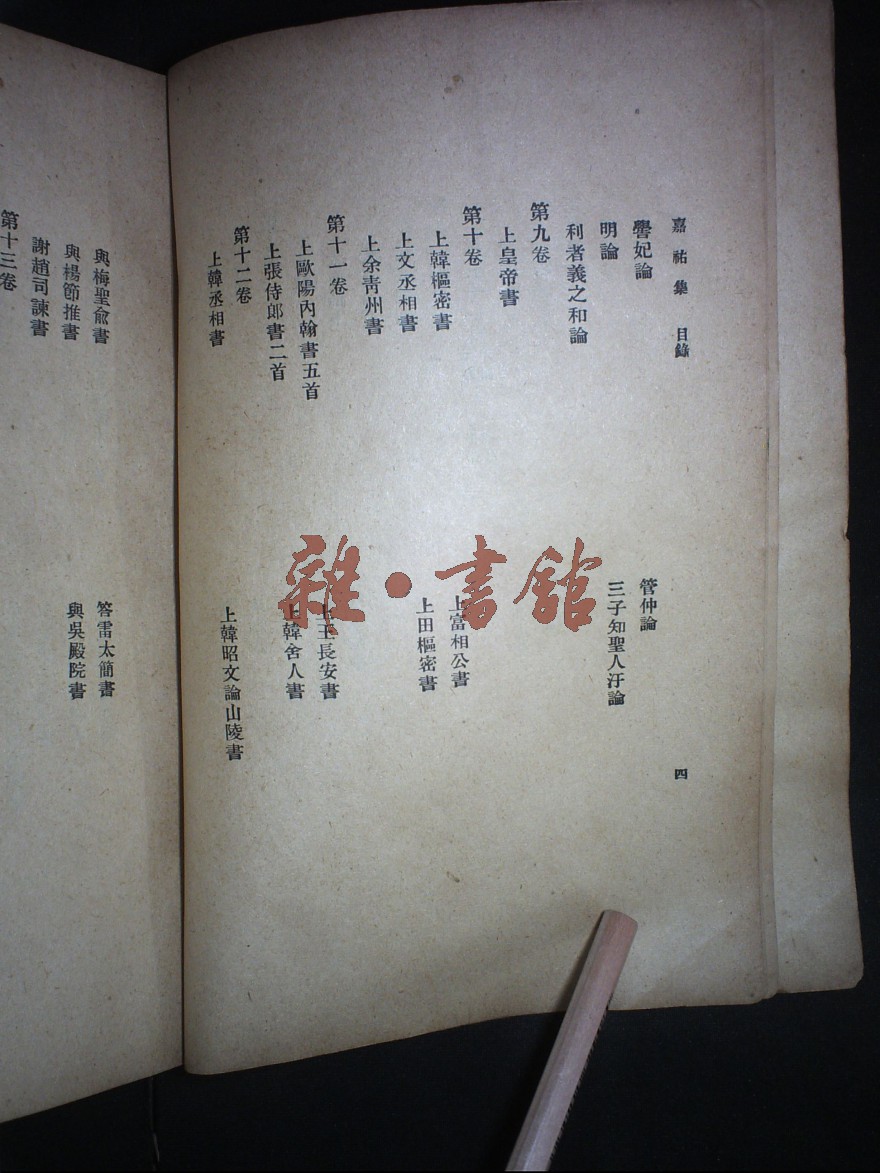 嘉祐集 目錄 四
嚳妃論 管仲論
明論 三子知聖人汙論
利者義之和論
第九卷
上皇帝書
第十卷
上韓樞密書 上富相公書
上文丞相書 上田樞密書
上余青州書
第十一卷
上歐陽內翰書五首 上王長安書
上張侍郎書二首 上韓舍人書
第十二卷
上韓丞相書 上韓昭文論山陵書
與梅聖俞書 答雷太簡書
與楊節推書 與吳殿院書
謝趙司諫書
第十三卷
雜·書館